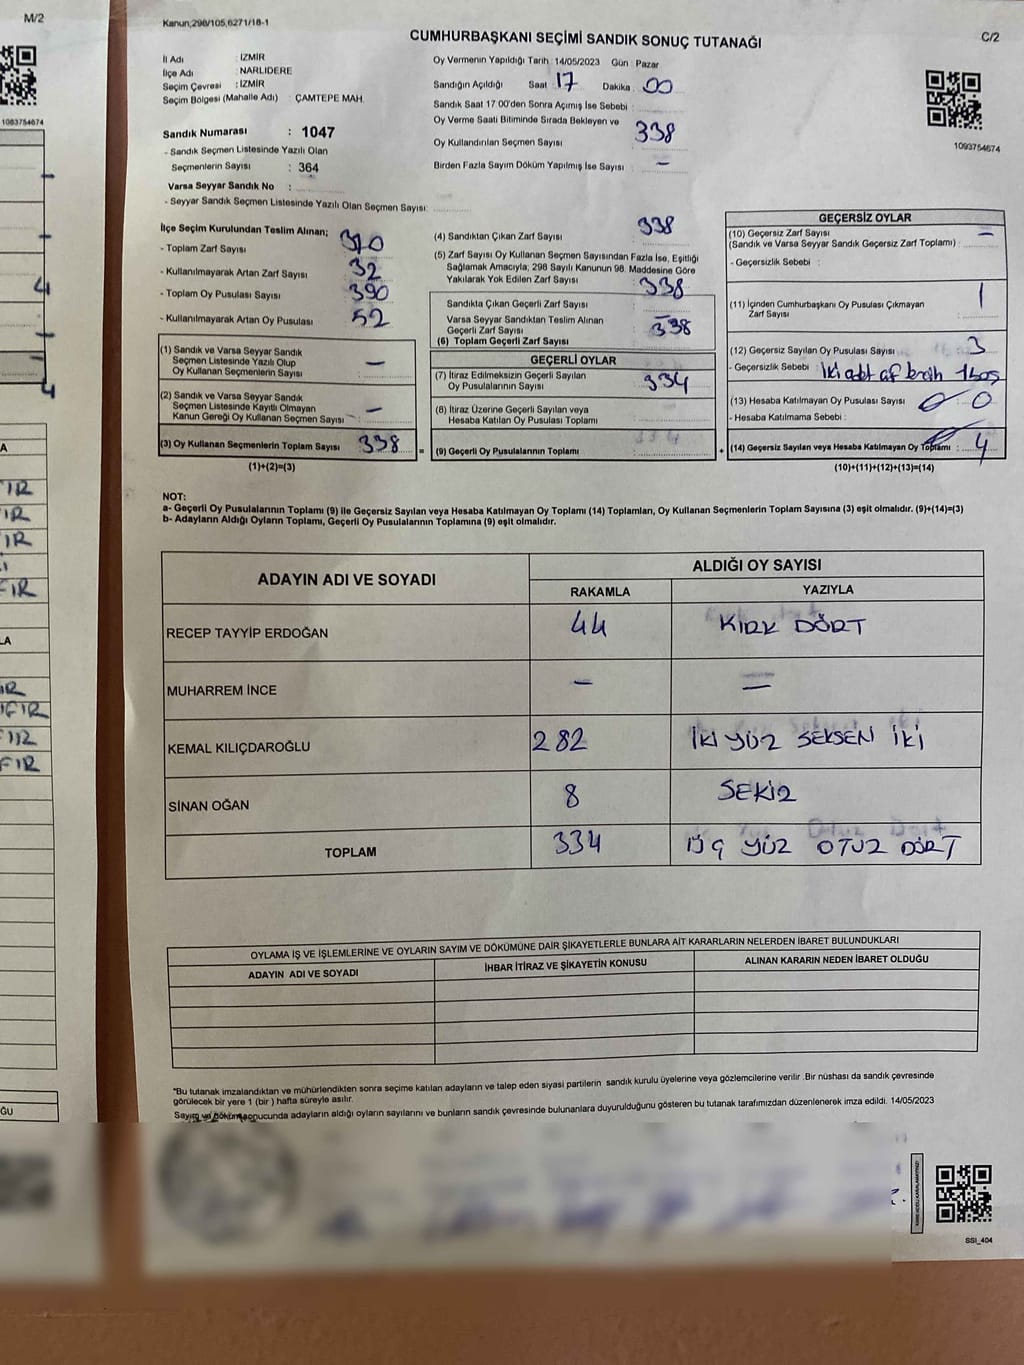 M/2
1093754674
4
4
Kanun;298/105,6271/18-1
CUMHURBAŞKANI SEÇİMİ SANDIK SONUÇ TUTANAĞI
C/2
İl Adı : İZMİR
İlçe Adı : NARLIDERE
Seçim Çevresi : İZMİR
Seçim Bölgesi (Mahalle Adı) : ÇAMTEPE MAH.
Sandık Numarası : 1047
- Sandık Seçmen Listesinde Yazılı Olan
Seçmenlerin Sayısı : 364
Varsa Seyyar Sandık No :
- Seyyar Sandık Seçmen Listesinde Yazılı Olan Seçmen Sayısı:
Oy Vermenin Yapıldığı Tarih 14/05/2023 Gün : Pazar
Sandığın Açıldığı Saat 17 Dakika 00
Sandık Saat 17:00'den Sonra Açımış İse Sebebi :
Oy Verme Saati Bitiminde Sırada Bekleyen ve
Oy Kullandırılan Seçmen Sayısı : 338
Birden Fazla Sayım Döküm Yapılmış İse Sayısı : –
1093754674
İlçe Seçim Kurulundan Teslim Alınan;
- Toplam Zarf Sayısı
- Kullanılmayarak Artan Zarf Sayısı : 32
- Toplam Oy Pusulası Sayısı : 390
- Kullanılmayarak Artan Oy Pusulası : 52
(1) Sandık ve Varsa Seyyar Sandık
Seçmen Listesinde Yazılı Olup
Oy Kullanan Seçmenlerin Sayısı –
(2) Sandık ve Varsa Seyyar Sandık
Seçmen Listesinde Kayıtlı Olmayan
Kanun Gereği Oy Kullanan Seçmen Sayısı –
(3) Oy Kullanan Seçmenlerin Toplam Sayısı 338
(1)+(2)=(3)
(4) Sandıktan Çıkan Zarf Sayısı : 338
(5) Zarf Sayısı Oy Kullanan Seçmen Sayısından Fazla İse, Eşitliği
Sağlamak Amacıyla; 298 Sayılı Kanunun 98. Maddesine Göre
Yakılarak Yok Edilen Zarf Sayısı :
Sandıkta Çıkan Geçerli Zarf Sayısı : 338
Varsa Seyyar Sandıktan Teslim Alınan
Geçerli Zarf Sayısı : –
(6) Toplam Geçerli Zarf Sayısı 338
GEÇERLİ OYLAR
(7) İtiraz Edilmeksizin Geçerli Sayılan
Oy Pusulalarının Sayısı : 334
(8) İtiraz Üzerine Geçerli Sayılan veya
Hesaba Katılan Oy Pusulaları Toplamı :
(9) Geçerli Oy Pusulalarının Toplamı : 334
GEÇERSİZ OYLAR
(10) Geçersiz Zarf Sayısı
(Sandık ve Varsa Seyyar Sandık Geçersiz Zarf Toplamı) : –
- Geçersizlik Sebebi :
(11) İçinden Cumhurbaşkanı Oy Pusulası Çıkmayan
Zarf Sayısı : 1
(12) Geçersiz Sayılan Oy Pusulası Sayısı : 3
- Geçersizlik Sebebi : İki adet
(13) Hesaba Katılmayan Oy Pusulası Sayısı : 0
- Hesaba Katılmama Sebebi :
(14) Geçersiz Sayılan veya Hesaba Katılmayan Oy Toplamı : 4
(10)+(11)+(12)+(13)=(14)
NOT:
a- Geçerli Oy Pusulalarının Toplamı (9) ile Geçersiz Sayılan veya Hesaba Katılmayan Oy Toplamı (14) Toplamları, Oy Kullanan Seçmenlerin Toplam Sayısına (3) eşit olmalıdır. (9)+(14)=(3)
b- Adayların Aldığı Oyların Toplamı, Geçerli Oy Pusulalarının Toplamına (9) eşit olmalıdır.
ADAYIN ADI VE SOYADI
ALDIĞI OY SAYISI
RAKAMLA YAZIYLA
RECEP TAYYİP ERDOĞAN 44 KIRK DÖRT
MUHARREM İNCE – –
KEMAL KILIÇDAROĞLU 282 İKİ YÜZ SEKSEN İKİ
SİNAN OĞAN 8 SEKİZ
TOPLAM 334 ÜÇ YÜZ OTUZ DÖRT
OYLAMA İŞ VE İŞLEMLERİNE VE OYLARIN SAYIM VE DÖKÜMÜNE DAİR ŞİKAYETLERLE BUNLARA AİT KARARLARIN NELERDEN İBARET BULUNDUKLARI
ADAYIN ADI VE SOYADI İHBAR İTİRAZ VE ŞİKAYETİN KONUSU ALINAN KARARIN NEDEN İBARET OLDUĞU
*Bu tutanak imzalandıktan ve mühürlendikten sonra seçime katılan adayların ve talep eden siyasi partilerin sandık kurulu üyelerine veya gözlemcilerine verilir .Bir nüshası da sandık çevresinde
görülecek bir yere 1 (bir ) hafta süreyle asılır.
Sayım ve döküm sonucunda adayların aldığı oyların sayılarını ve bunların sandık çevresinde bulunanlara duyurulduğunu gösteren bu tutanak tarafımızdan düzenlenerek imza edildi. 14/05/2023
SSI_404